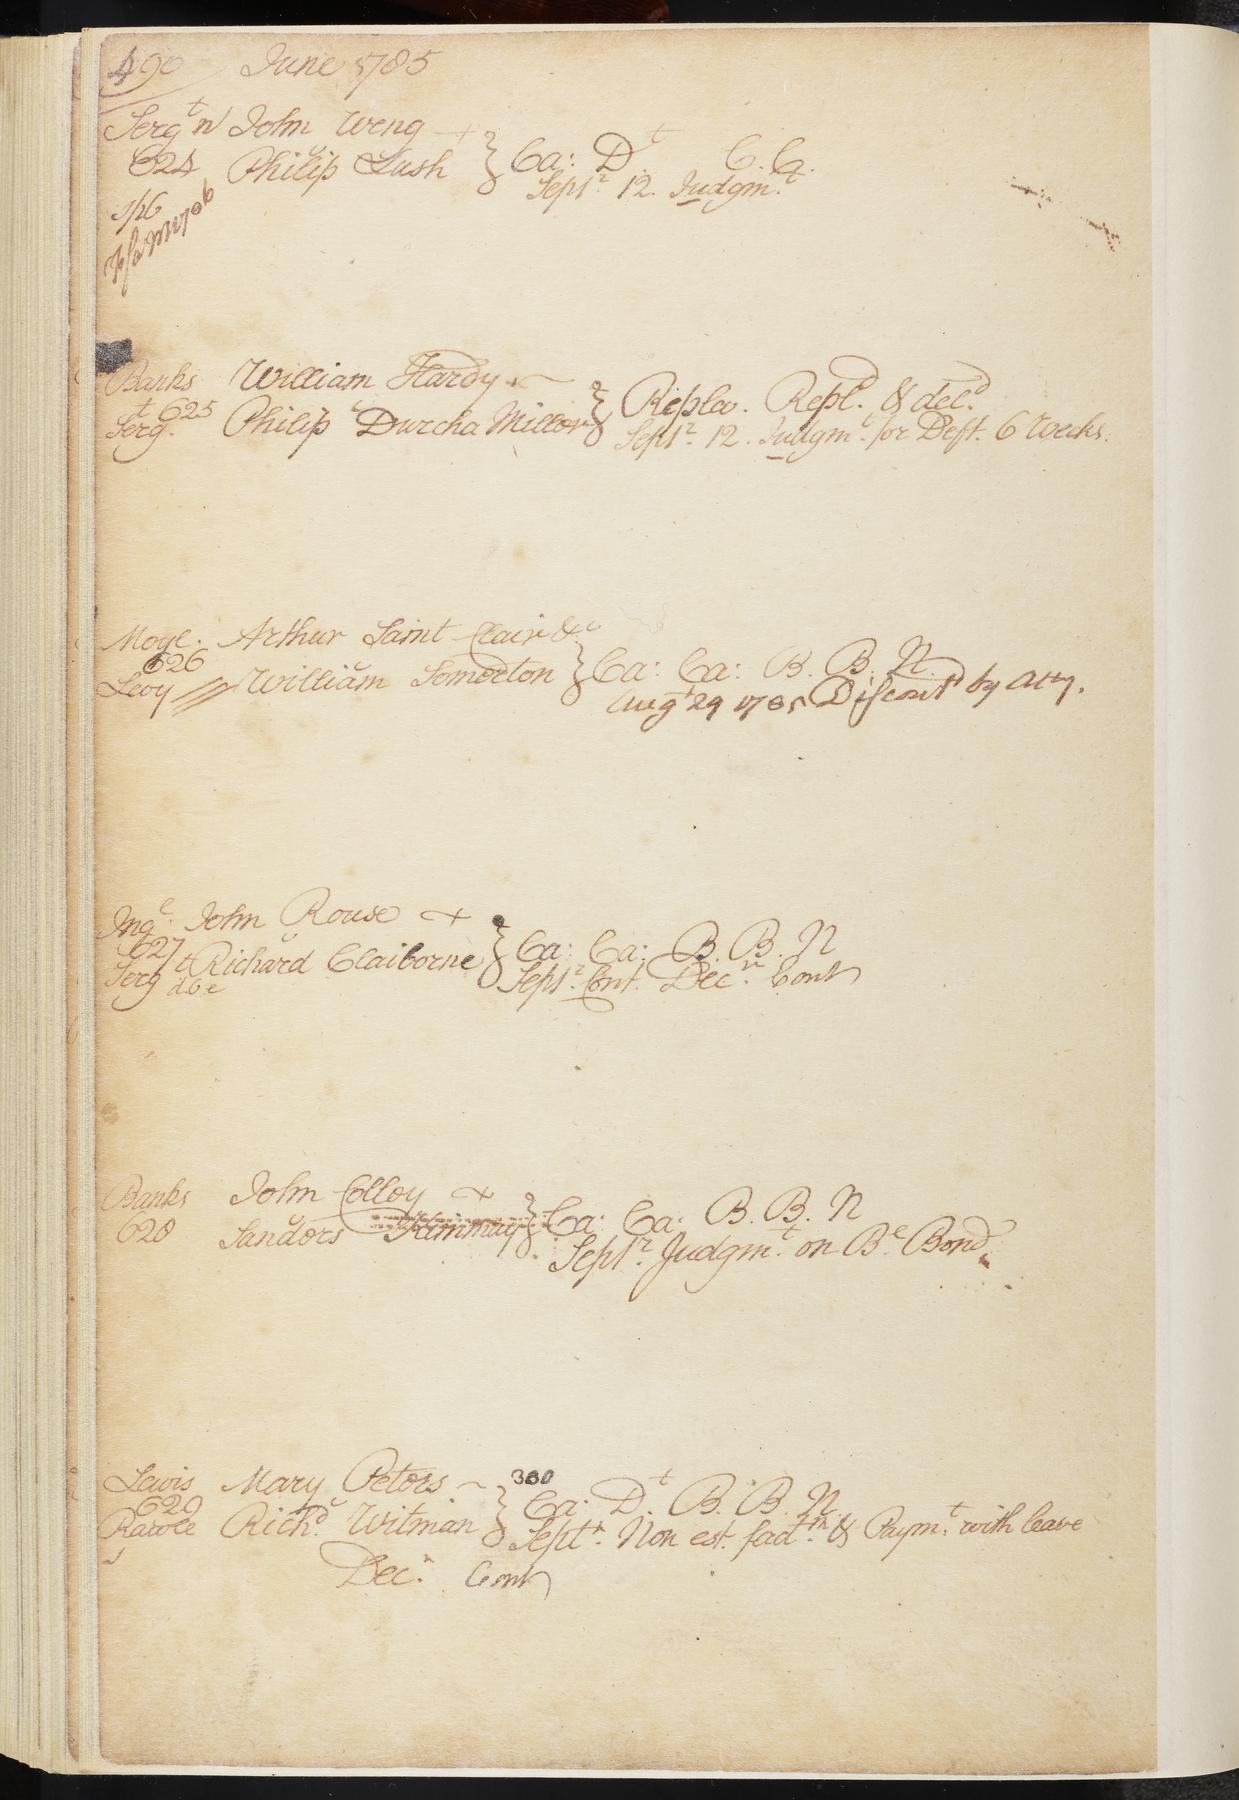 490 June 1785
Sergt n John Weng
624 v Philip Lush } Ca: Dt C. C.
Septr 12. Judgmt
Banks William Hardy
625 v Philip Durcha Miller } Replev. Repl. & decd.
Sergt. Septr. 12. Judgmt for Deft. 6 Weeks.
Moyl. Arthur Saint Clair &c
626
Levy v William Somerton } Ca: Ca: B. B. N
Augt 29 1785 Discontd by Atty.
Ingl. John Rouse
627 v Richard Claiborne } Ca: Ca: B. B. N
Sergt Septr. Cont. Decr. Cont
Banks John Colloy
628 v Sanders Kimmay } Ca: Ca: B. B. N
Septr. Judgmt. on Be Bond
Lewis Mary Peters 380
629 Ca: Dt. B. B. N
Rawle v Richd. Witman } Septr. Non est factm. & Paymt. with leave
Decr. Cont